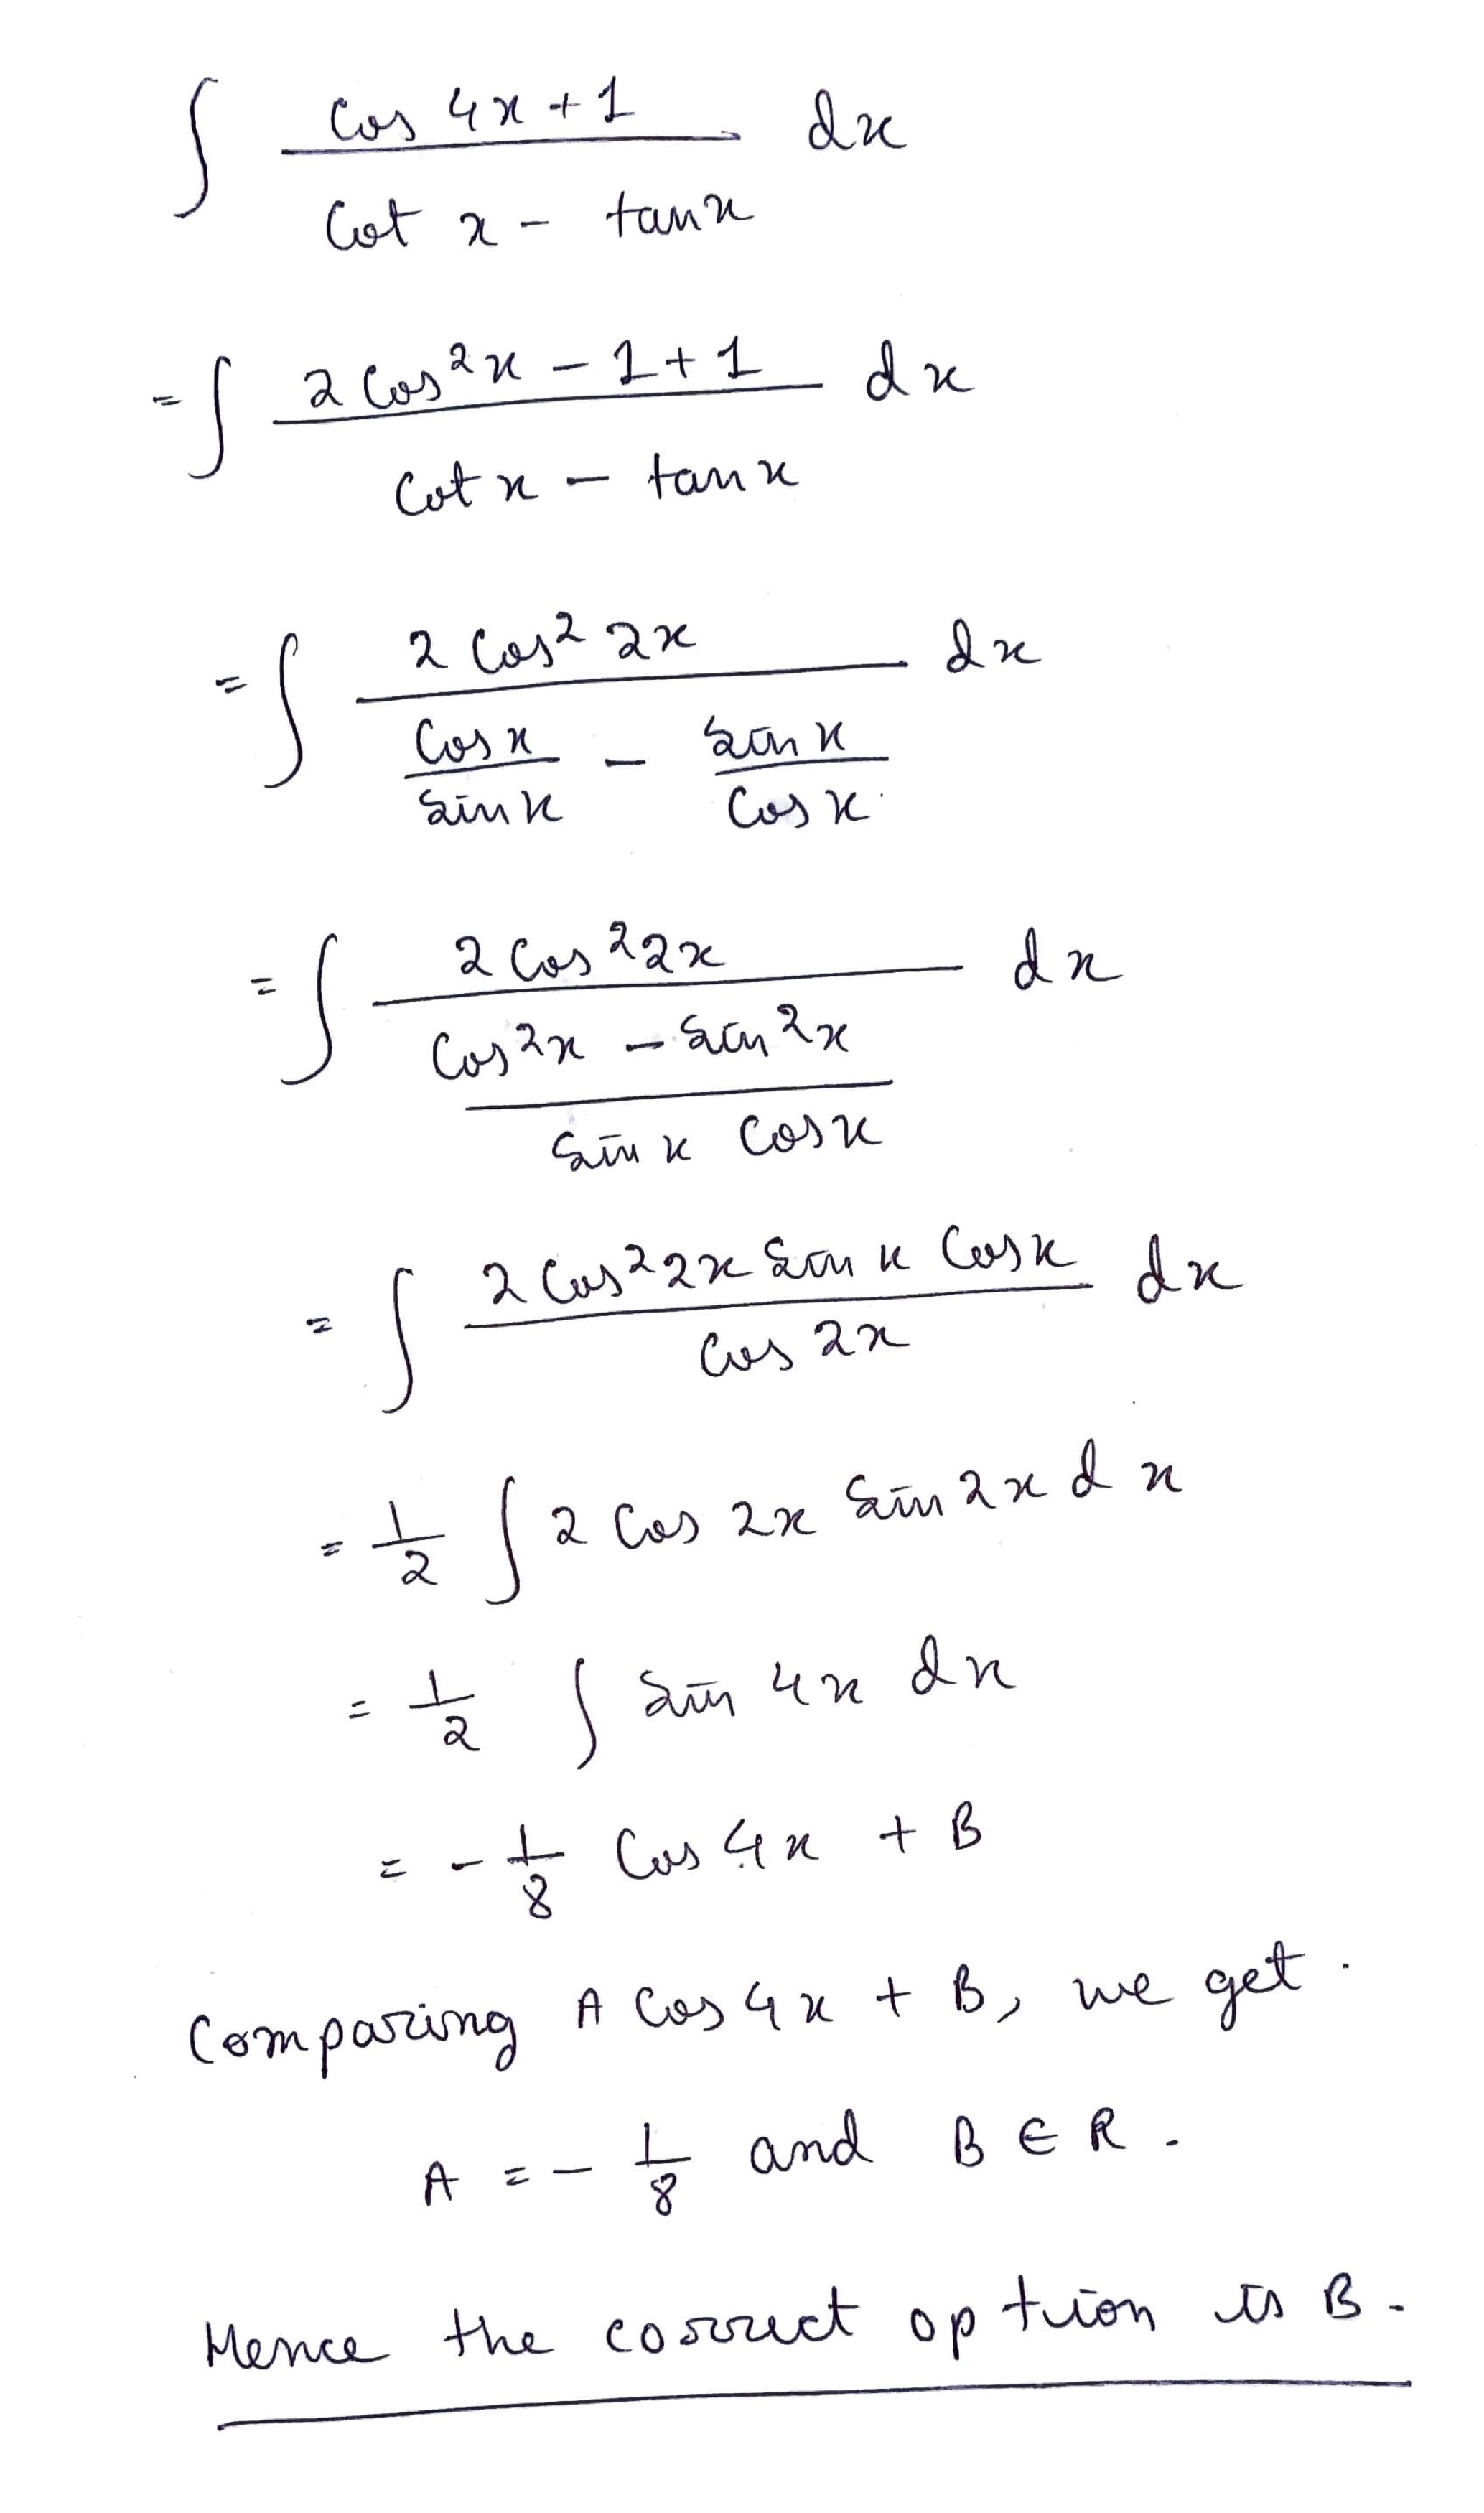 ∫ (cos 4x + 1)/(cot x - tan x) dx
= ∫ (2 cos²x - 1 + 1)/(cot x - tan x) dx
= ∫ (2 cos² 2x)/(cos x/sin x - sin x/cos x) dx
= ∫ (2 cos² 2x)/((cos²x - sin²x)/(sin x cos x)) dx
= ∫ (2 cos² 2x sin x cos x)/(cos 2x) dx
= 1/2 ∫ 2 cos 2x sin 2x dx
= 1/2 ∫ sin 4x dx
= - 1/8 cos 4x + B
Comparing A cos 4x + B, we get.
A = - 1/8 and B ∈ R.
Hence the correct option is B.